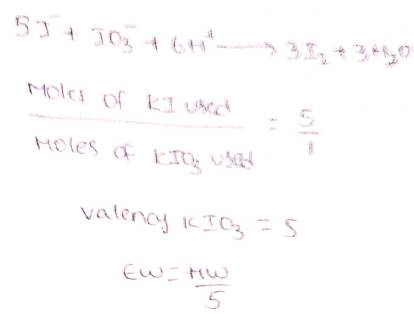 5I⁻ + IO₃⁻ + 6H⁺ ⟶ 3I₂ + 3H₂O
Moles of KI used / Moles of KIO₃ used = 5/1
Valency KIO₃ = 5
EW = MW/5